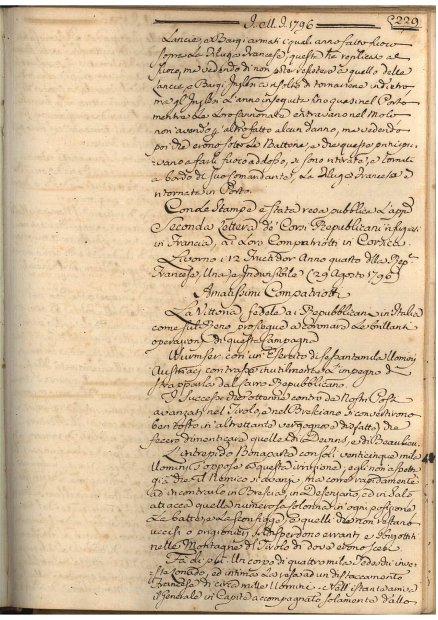 J. M. J. 1796
229
Lancie, e Bargi armati i quali anno fatto fuoco
sopra la Feluga Francese; questa ha replicato al
fuoco, ma vedendo di non poter resistere a quello delle
Lancie, e Bargi Inglesi risolse di tornare indietro
ma gl'Inglesi l'anno inseguita fino quasi nel Porto
mentre le loro cannonate entravano nel Molo
non avendo altro fatto alcun danno, ma vedendo
poi che erano sotto le Battarie, e che queste principi:
avano a farli fuoco addosso, si sono ritirate, e tornati
a bordo di suo Comandante; La Feluga Francese è
ritornata in Porto.
Con le Stampe è stata resa pubblica l'appr:
Seconda Lettera de' Corsi Republicani rifugiati
in Francia, ai Loro Compatriotti in Corsica.
Livorno i 12 Fructidor Anno quarto della Rep:
Francese, Una, e Indivisibile (29 Agosto 1796)
Amatissimi Compatriotti
La Vittoria fedele ai Republicani in Italia
come sul Reno prosiegue a coronare le brillanti
operazioni di questa Campagna
Wurmser con un Esercito di sessantamila Uomini
Austriaci contrasta inutilmente a l'impegno di
strapparla dal carro Repubblicano.
I Successi che ottenne contro de Nostri Posti
avanzati nel Tirolo, e nel Bresciano si convertirono
ben tosto in altrettante vergognose disfatte, che
fecero dimenticare quelle di Devins, e di Beaulieu.
L'intrepido Bonaparte con soli venticinque mila
Uomini s'oppose a questa irruzione; egli non aspetta
già che il Nemico si avanzi, ma corre rapidamente
ad incontrarlo in Brescia, in Desenzano, ed in Salò
attacca quella numerosa Colonna in ogni posizione
la batte, e la sconfigge, e quelli che non restano
uccisi o prigionieri si disperdono erranti, e fuggitivi
nelle Montagne di Tirolo di dove erano scesi
Fa di più. Un corpo di quattromila Tedeschi inve:
sta Lonado, ed intima la resa ad un distaccamento
Francese di circa mille Uomini. Nell'istante arriva
il Generale in Capite accompagnato solamente dallo